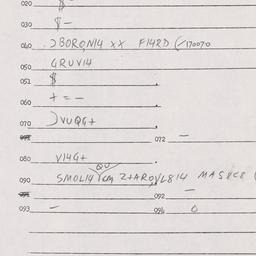 020 $
030 $-
040 ƆBORON14 XX F14RD (170070
050 GRUV14
051 $ .
060 + = - .
070 )VUQG+ .
072 -
080 V14G+ .
QU
090 SMOL14 2+AROVL814 MAS8C8 (
092 -
093 -
094 0